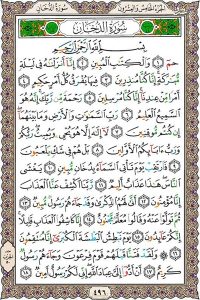 الجزء الخامس والعشرون سورة الدخان
سُورَةُ الدُّخَانِ
بِسْمِ اللَّهِ الرَّحْمَٰنِ الرَّحِيمِ
حمٓ ١ وَالْكِتَٰبِ الْمُبِينِ ٢ إِنَّآ أَنزَلْنَٰهُ فِى لَيْلَةٍ
مُّبَٰرَكَةٍ إِنَّا كُنَّا مُنذِرِينَ ٣ فِيهَا يُفْرَقُ كُلُّ أَمْرٍ حَكِيمٍ ٤
أَمْرًا مِّنْ عِندِنَآ إِنَّا كُنَّا مُرْسِلِينَ ٥ رَحْمَةً مِّن رَّبِّكَ إِنَّهُۥ هُوَ
السَّمِيعُ الْعَلِيمُ ٦ رَبِّ السَّمَٰوَٰتِ وَالْأَرْضِ وَمَا بَيْنَهُمَآ إِن
كُنتُم مُّوقِنِينَ ٧ لَآ إِلَٰهَ إِلَّا هُوَ يُحْىِۦ وَيُمِيتُ رَبُّكُمْ
وَرَبُّ ءَابَآئِكُمُ الْأَوَّلِينَ ٨ بَلْ هُمْ فِى شَكٍّ يَلْعَبُونَ ٩
فَارْتَقِبْ يَوْمَ تَأْتِى السَّمَآءُ بِدُخَانٍ مُّبِينٍ ١٠ يَغْشَى
النَّاسَ هَٰذَا عَذَابٌ أَلِيمٌ ١١ رَّبَّنَا اكْشِفْ عَنَّا الْعَذَابَ
إِنَّا مُؤْمِنُونَ ١٢ أَنَّىٰ لَهُمُ الذِّكْرَىٰ وَقَدْ جَآءَهُمْ رَسُولٌ مُّبِينٌ ١٣
ثُمَّ تَوَلَّوْا عَنْهُ وَقَالُوا مُعَلَّمٌ مَّجْنُونٌ ١٤ إِنَّا كَاشِفُوا الْعَذَابِ قَلِيلًا
إِنَّكُمْ عَآئِدُونَ ١٥ يَوْمَ نَبْطِشُ الْبَطْشَةَ الْكُبْرَىٰٓ إِنَّا مُنتَقِمُونَ
١٦ وَلَقَدْ فَتَنَّا قَبْلَهُمْ قَوْمَ فِرْعَوْنَ وَجَآءَهُمْ رَسُولٌ
كَرِيمٌ ١٧ أَنْ أَدُّوٓا إِلَىَّ عِبَادَ اللَّهِ إِنِّى لَكُمْ رَسُولٌ أَمِينٌ ١٨
٤٩٦